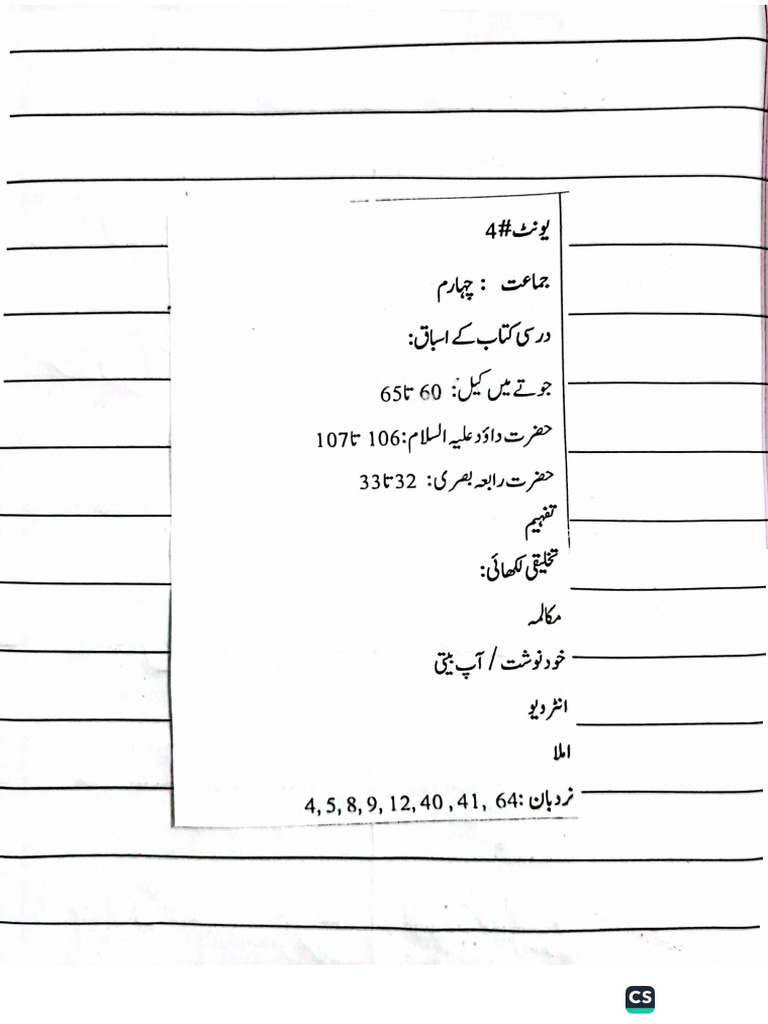 یونٹ#4
جماعت : چہارم
درسی کتاب کے اسباق:
جوتے میں کیل: 60 تا 65
حضرت داؤد علیہ السلام: 106 تا 107
حضرت رابعہ بصری: 32 تا 33
تفہیم
تخلیقی لکھائی:
مکالمہ
خودنوشت / آپ بیتی
انٹرویو
املا
نردبان: 64 ,41 ,40 ,12 ,9 ,8 ,5 ,4
CS